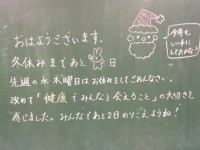 おはようございます。
冬休みまであと 日
先週の水木曜日はお休みをしてごめんなさい。
改めて「健康でみんなと会えること」の大切さを
感じました。みんなであと2日のりこえようね!
今年も
いい子に
してたかな?